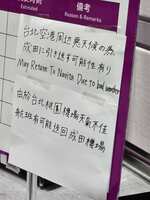 備考
Estimated
Reason & Remarks
台北空港周辺悪天候の為、
成田に引き返す可能性有り
May Return To Narita Due to bad weather
由於台北桃園機場天氣不佳
航班有可能返回成田機場